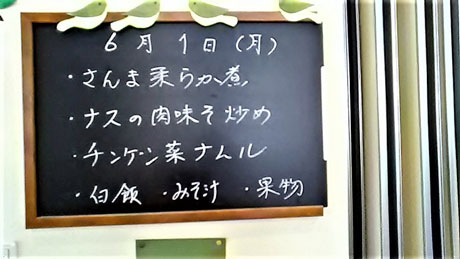 6月1日(月)
・さんま柔らか煮
・ナスの肉味そ炒め
・チンゲン菜ナムル
・白飯 ・みそ汁 ・果物